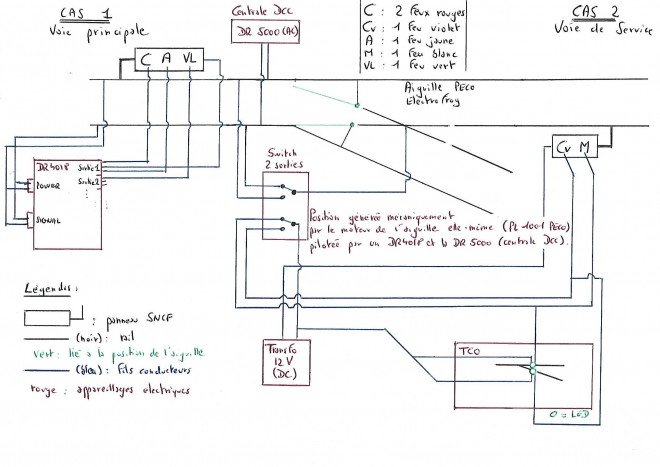 CAS 1
Voie principale
Centrale DCC
DR 5000 (AC)
C : 2 Feux rouges
Cv : 1 Feu violet
A : 1 Feu jaune
M : 1 Feu blanc
VL : 1 Feu vert
CAS 2
Voie de Service
C A VL
Aiguille PECO
Electrofrog
Switch
2 sorties
Cv M
DR4018
Sortie1
POWER
Sortie2
SIGNAL
Position généré mécaniquement
par le moteur de l'aiguille elle-même (PL 1001 PECO)
pilotée par un DR4018 et la DR 5000 (centrale DCC).
Légendes :
: panneau SNCF
(noir) : rail
vert : lié à la position de l'aiguille
(bleu) : Fils conducteurs
rouge : appareillages electriques
Transfo
12 V
(DC)
TCO
O = LED